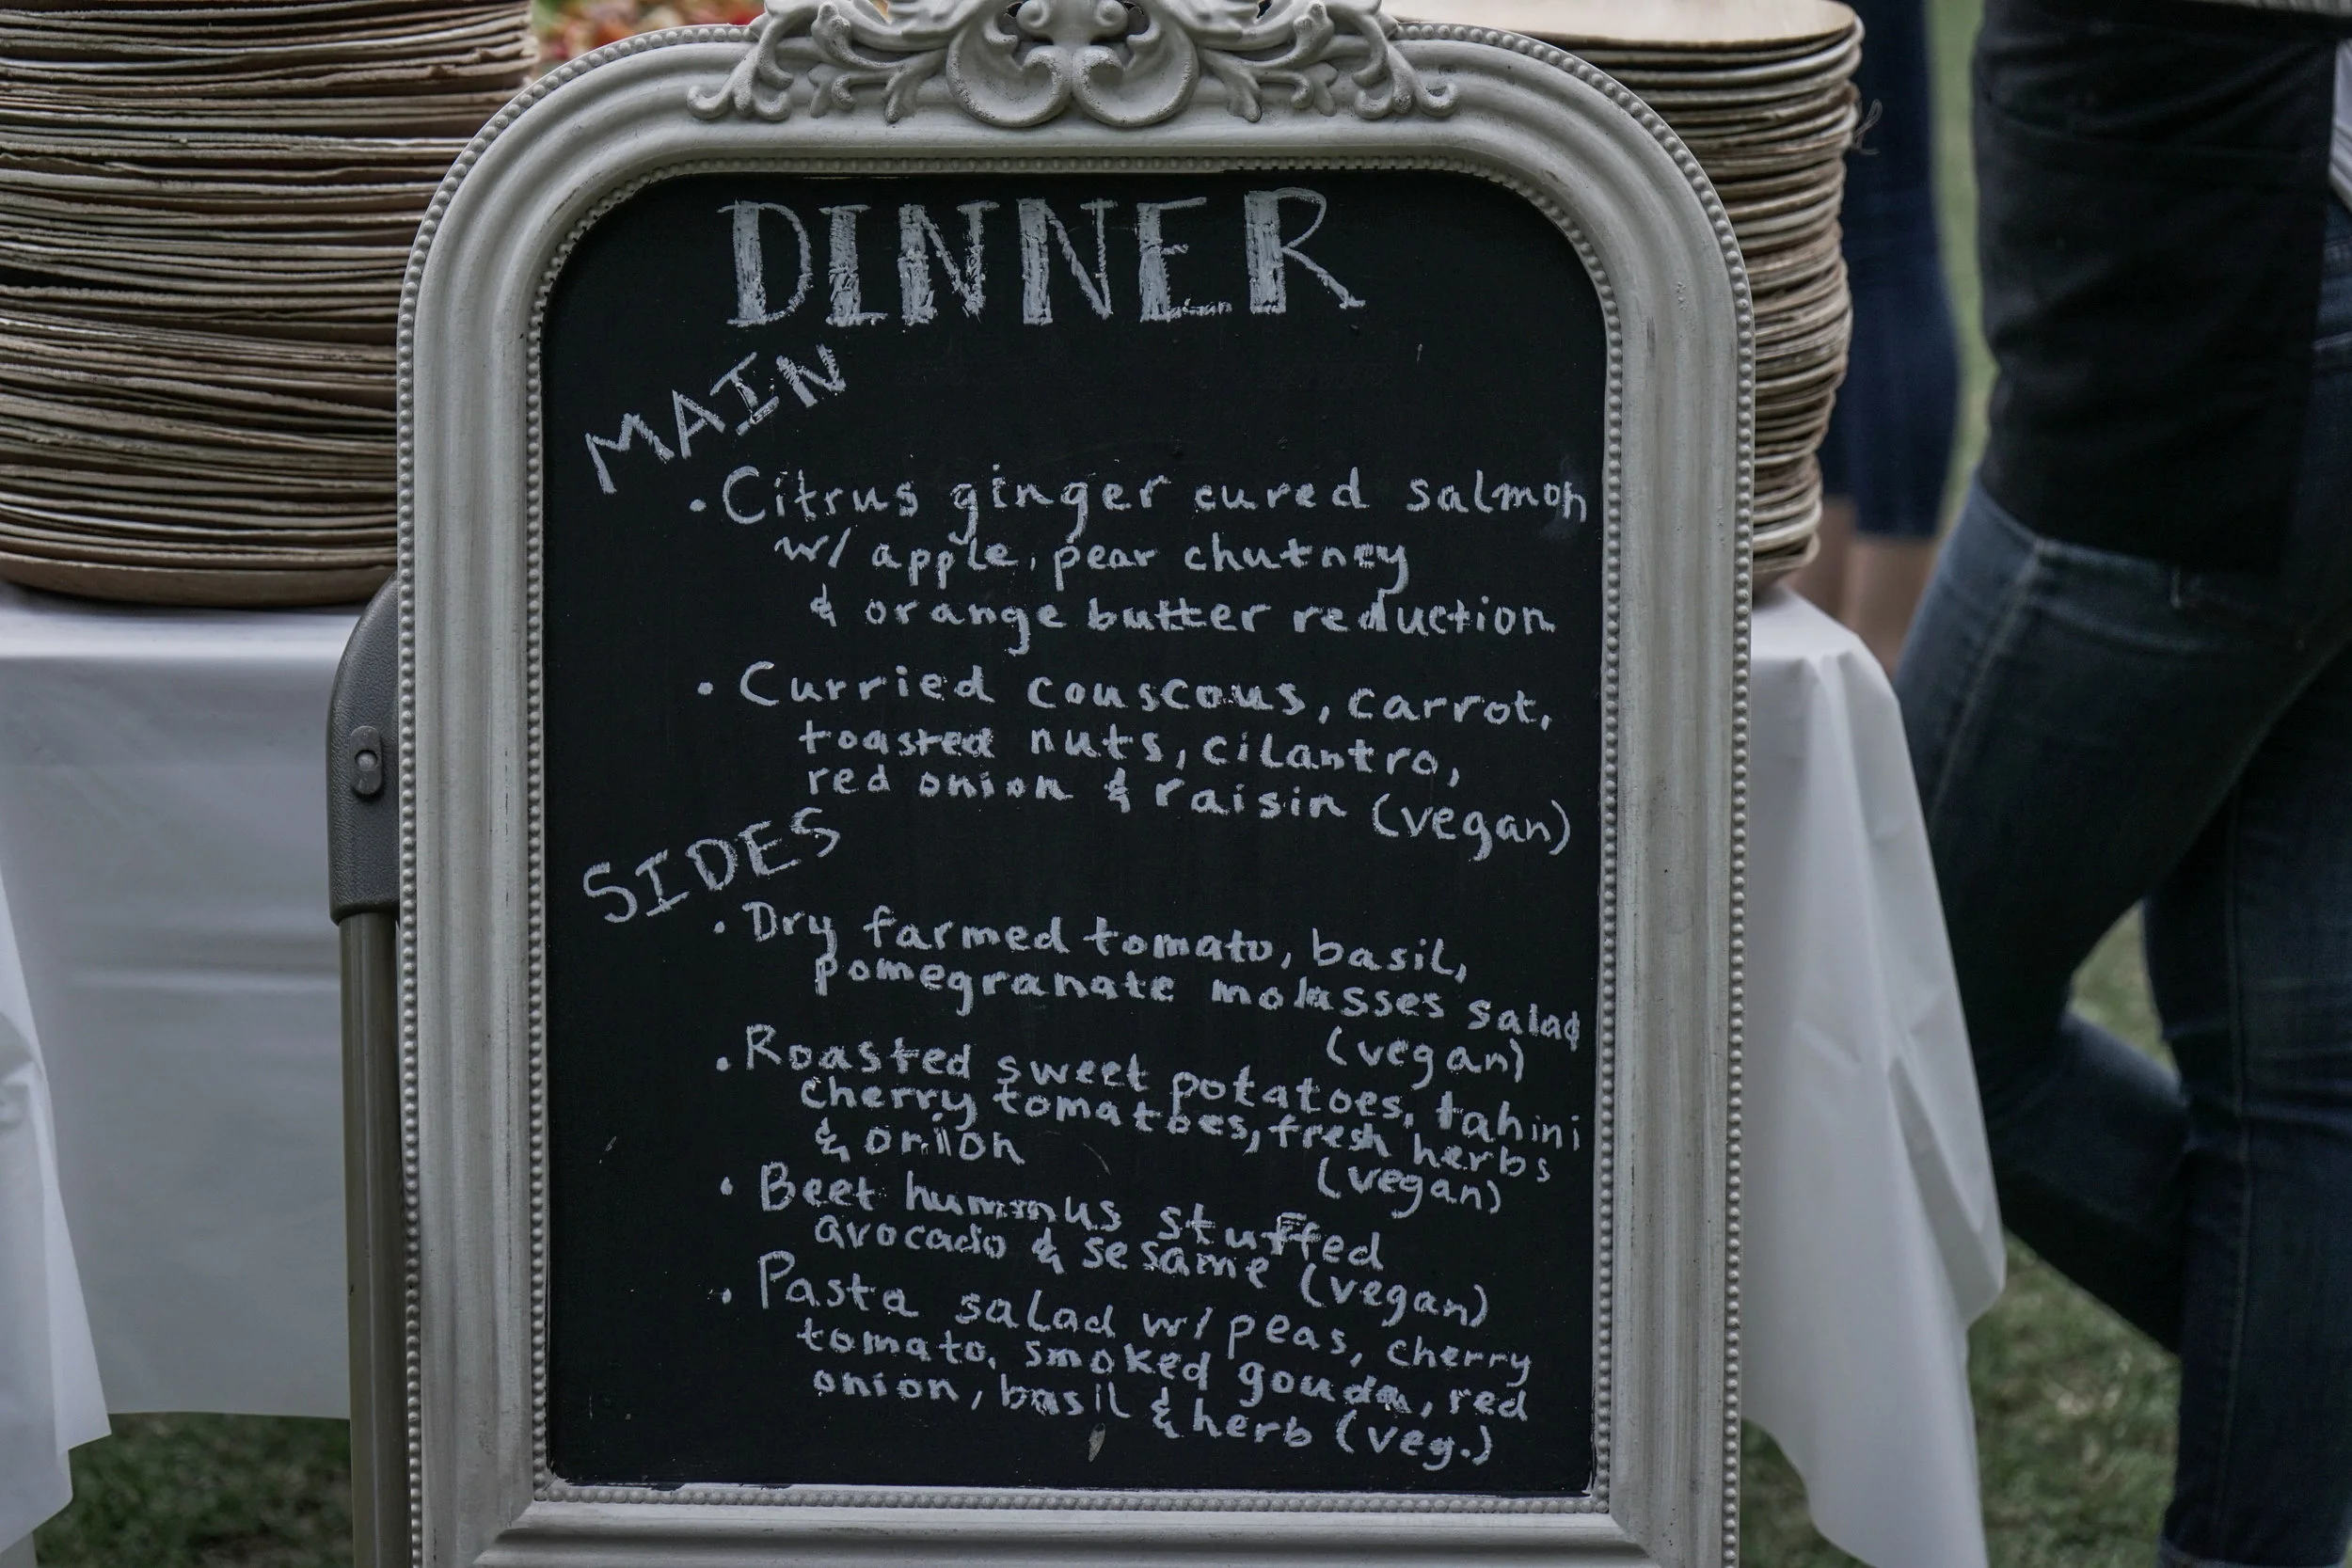 DINNER
MAIN
• Citrus ginger cured salmon
w/ apple, pear chutney
& orange butter reduction
• Curried couscous, carrot,
toasted nuts, cilantro,
red onion & raisin (vegan)
SIDES
• Dry farmed tomato, basil,
pomegranate molasses salad
(vegan)
• Roasted sweet potatoes, tahini
cherry tomatoes, fresh herbs
& onion (vegan)
• Beet hummus stuffed
avocado & sesame (vegan)
• Pasta salad w/ peas, cherry
tomato, smoked gouda, red
onion, basil & herb (veg.)